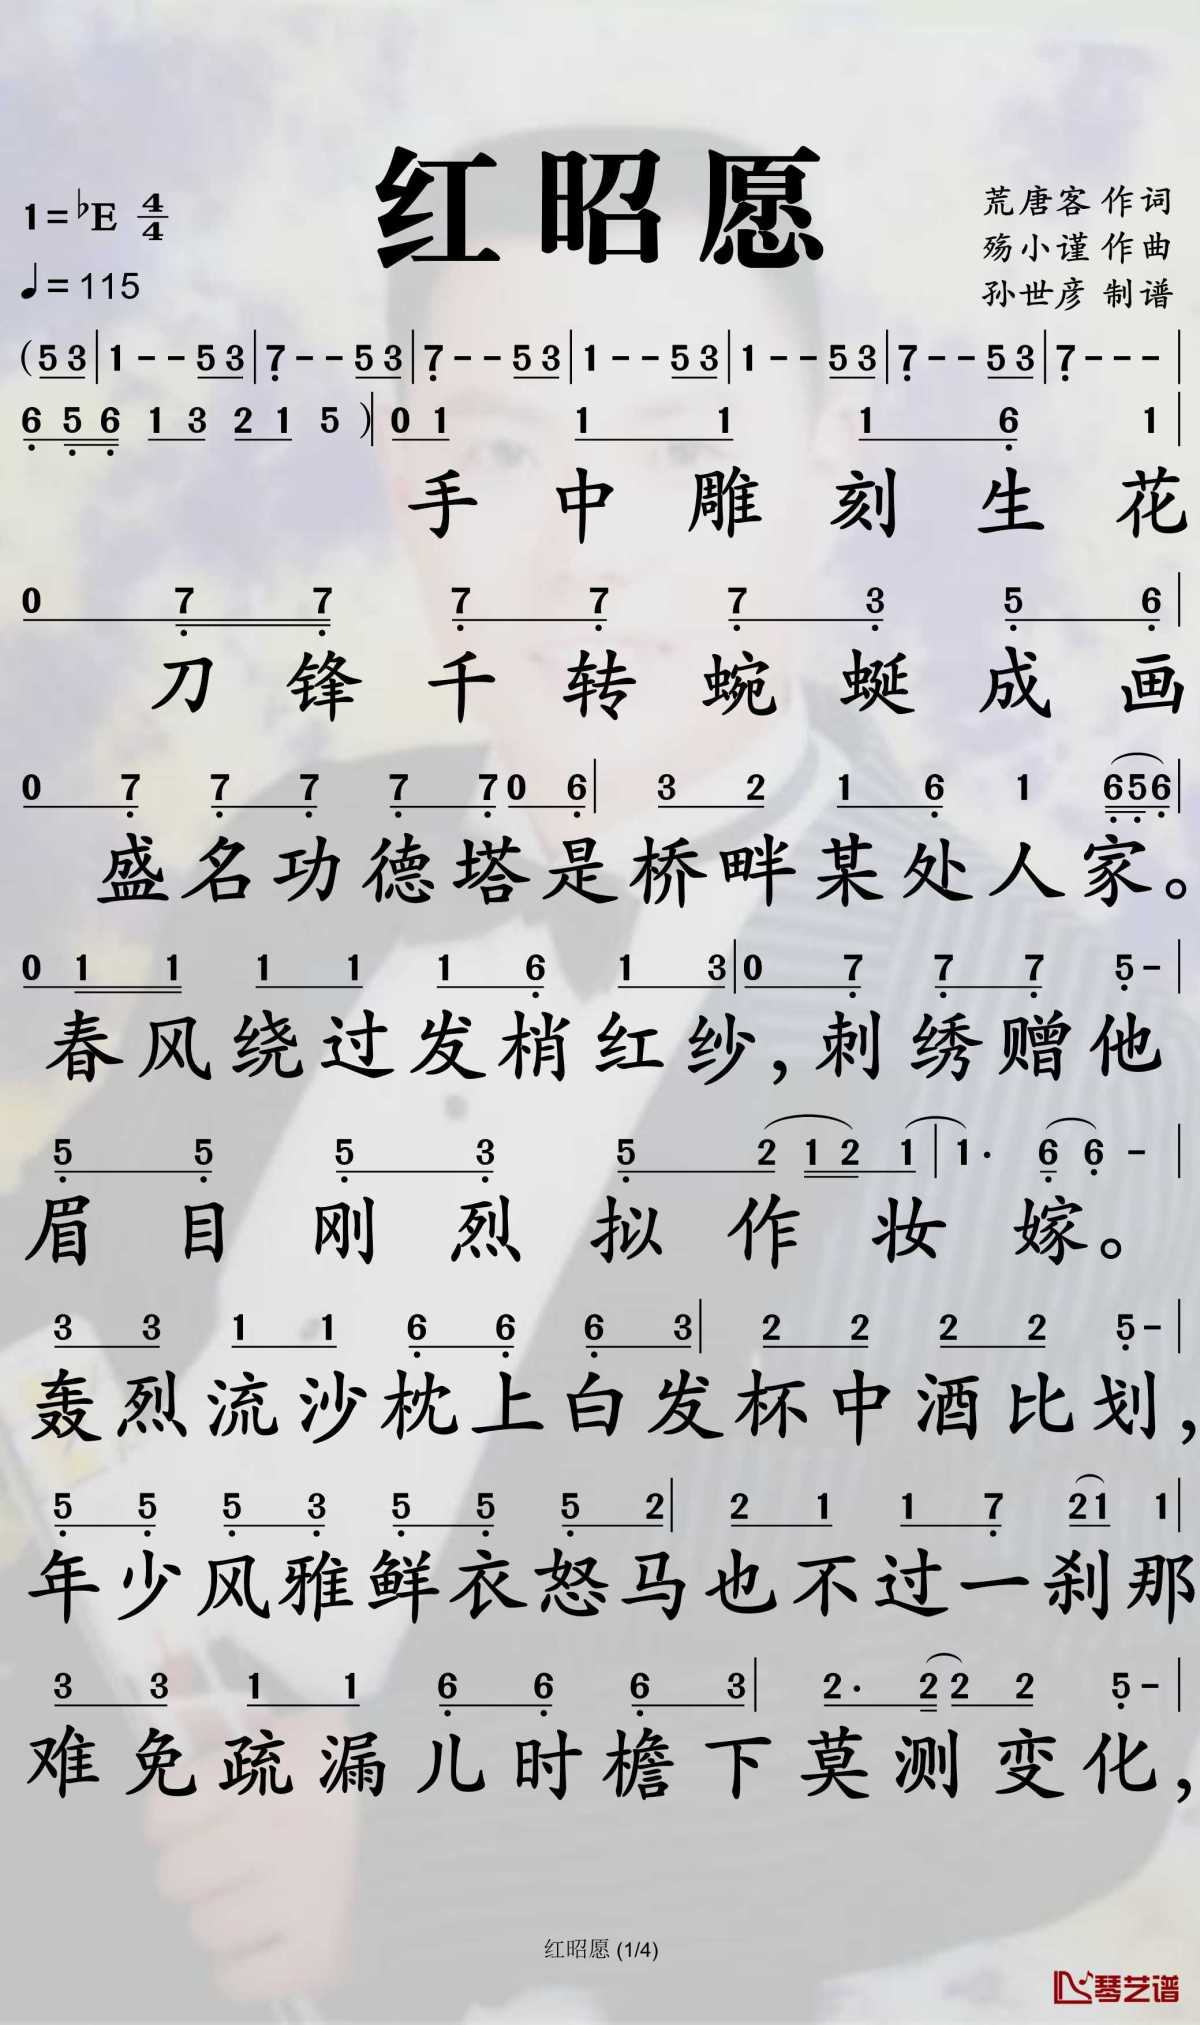 红昭愿
1=♭E 4/4
♩=115
荒唐客 作词
殇小谨 作曲
孙世彦 制谱
(5 3|1 - - 5 3|7 - - 5 3|7 - - 5 3|1 - - 5 3|1 - - 5 3|7 - - 5 3|7 - - -|
6 5 6 1 3 2 1 5 )|0 1 1 1 1 6 1|
手中雕刻生花
0 7 7 7 7 7 3 5 6|
刀锋千转蜿蜒成画
0 7 7 7 7 7 0 6|3 2 1 6 1 6 5 6|
盛名功德塔是桥畔某处人家。
0 1 1 1 1 1 6 1 3|0 7 7 7 5 -|
春风绕过发梢红纱，刺绣赠他
5 5 5 3 5 2 1 2 1|1· 6 6 -|
眉目刚烈拟作妆嫁。
3 3 1 1 6 6 6 3|2 2 2 2 5 -|
轰烈流沙枕上白发杯中酒比划，
5 5 5 3 5 5 5 2|2 1 1 7 2 1 1|
年少风雅鲜衣怒马也不过一刹那
3 3 1 1 6 6 6 3|2· 2 2 2 5 -|
难免疏漏儿时檐下莫测变化，
红昭愿 (1/4)
琴艺谱